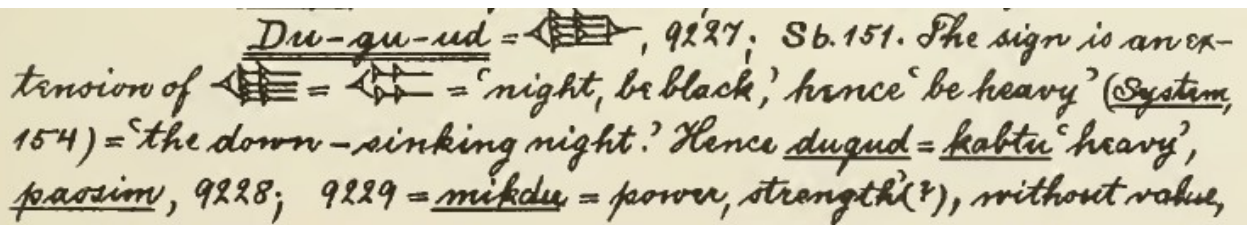 Du-gu-ud = , 9227; Sb. 151. The sign is an ex-
tension of = = ‘night, be black,’ hence ‘be heavy’ (System,
154) = ‘the down-sinking night.’ Hence dugud = kabtu ‘heavy’,
passim, 9228; 9229 = mikdu = power, strength’(?), without value,